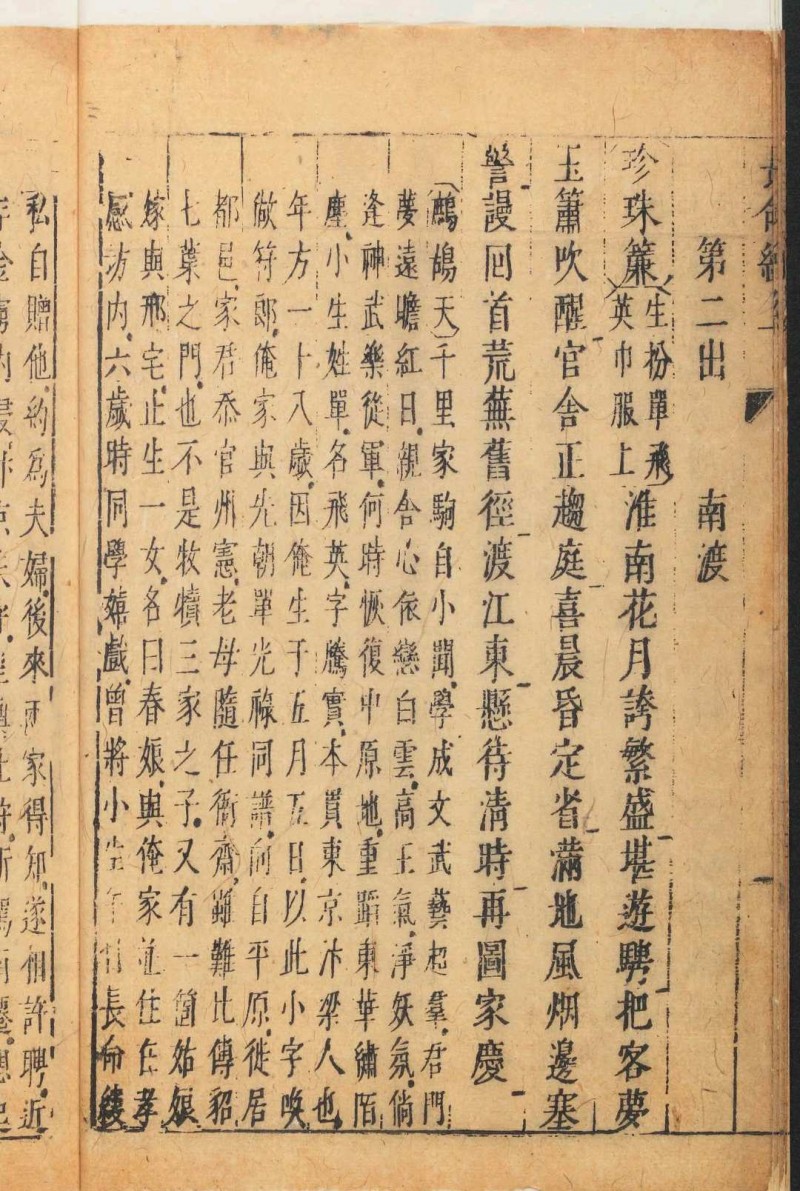 第二出　南渡
珍珠簾生扮單飛英巾服上淮南花月誇繁盛堪遊騁把客夢
玉簫吹醒官舍正趨庭喜晨昏定省滿地風烟邊塞
警謾回首荒蕪舊徑渡江東懸待清時再圖家慶
鷓鴣天千里家駒自小聞學成文武藝超羣君門
夢遠瞻紅日親舍心依戀白雲高王氣淨妖氛倘
逢神武樂從軍何時恢復中原地重蹈東華繡陌
塵小生姓單名飛英字騰實本貫東京汴梁人也
年方一十八歲因俺生于五月五日以此小字喚
做符郎俺家與先朝單光祿同譜向自平原徙居
都邑家君忝官州憲老母隨任衙齋雖難比傳貂
七葉之門也不是牧犢三家之子又有一箇姑娘
嫁與邢宅止生一女名曰春娘與俺家並住在孝
感坊內六歲時同學嬉戲曾將小生長命綾
私自贈他約爲夫婦後來兩家得知遂相許聘近